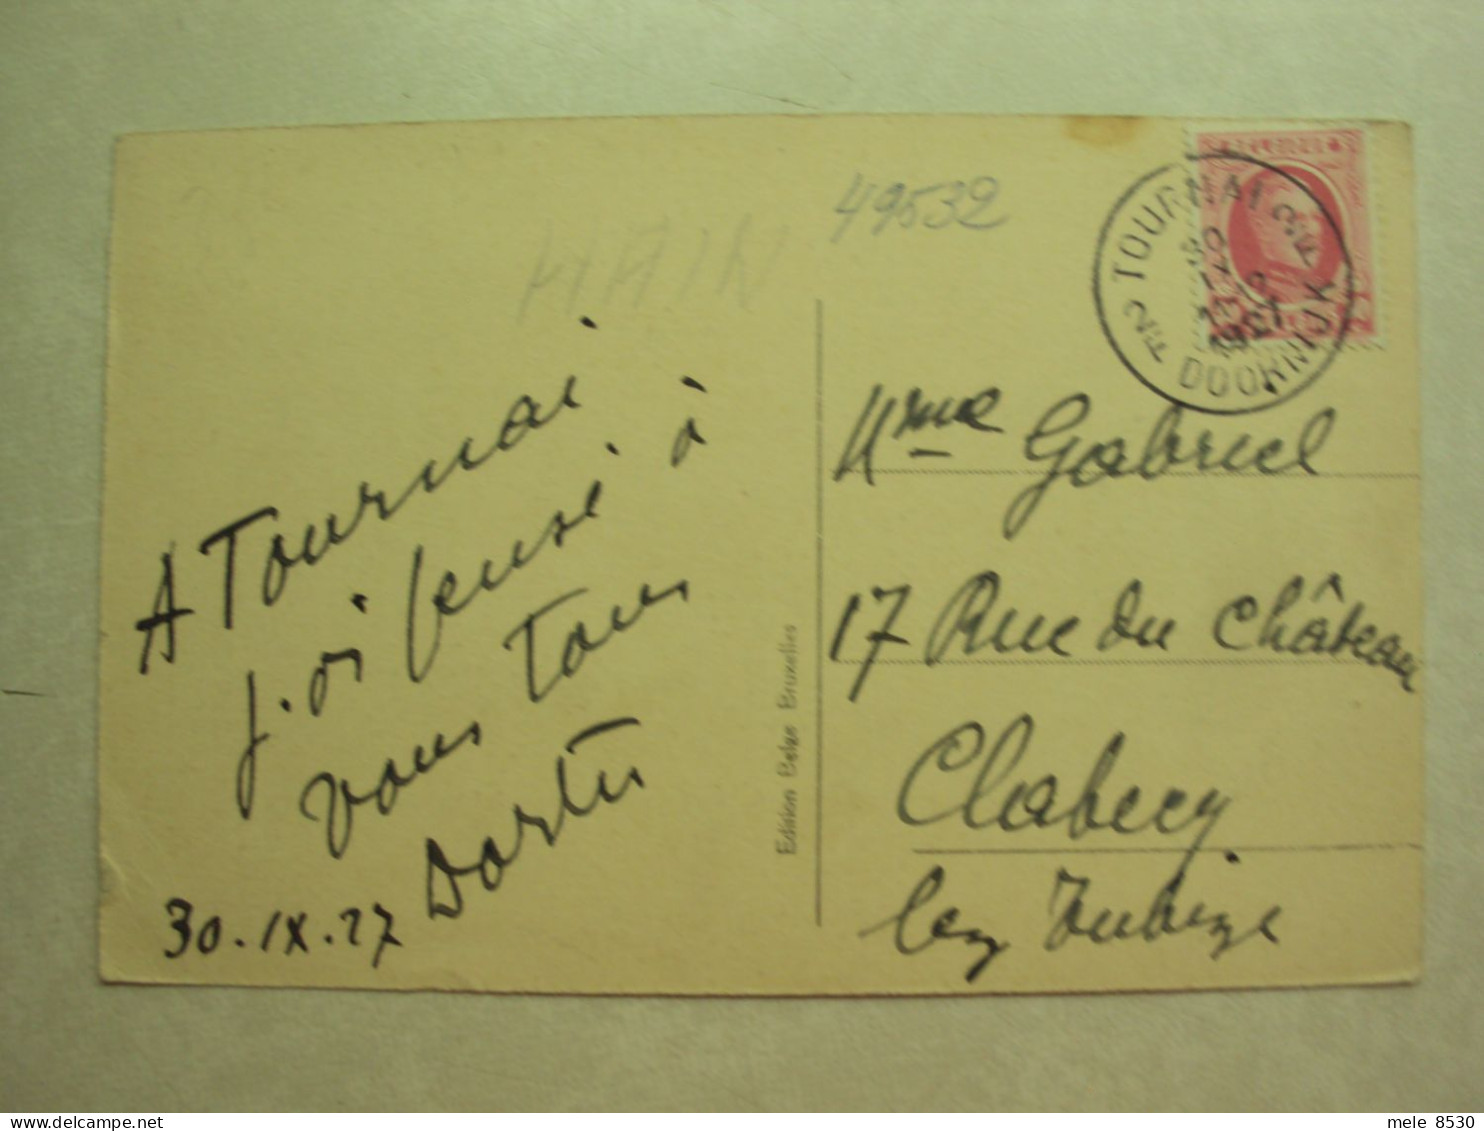 49532
HAIN
TOURNAI
DOORNIJK
A Tournai
j.ai pensé à
vous tous
30.IX.27
Edition Belge Bruxelles
Mme Gabriel
17 Rue du Château
Clabecq
lez Tubize
mele 8530